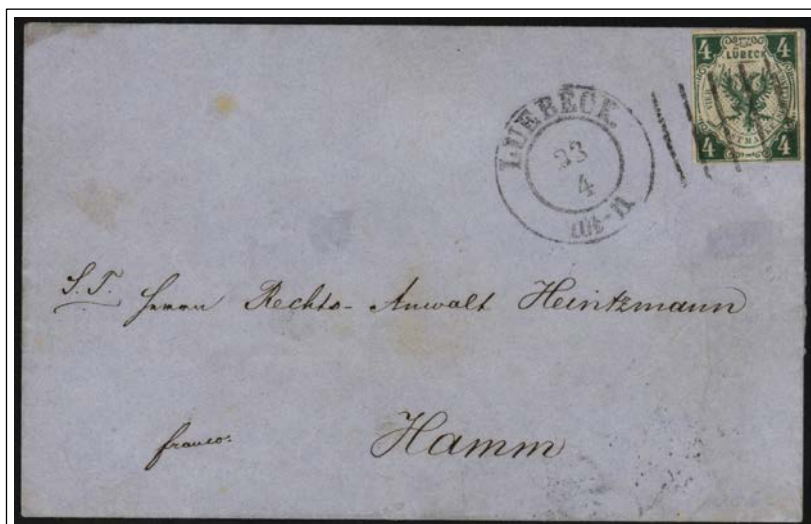 4 4
LÜBECK
4 4
LUEBECK
23
4
S.T. Herrn Rechts-Anwalt Heintzmann
franco.
Hamm